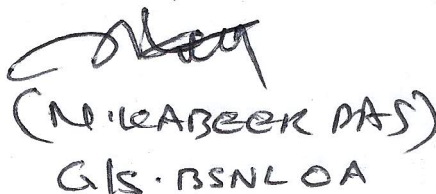 (N.KABEER DAS)
G/S. BSNLOA